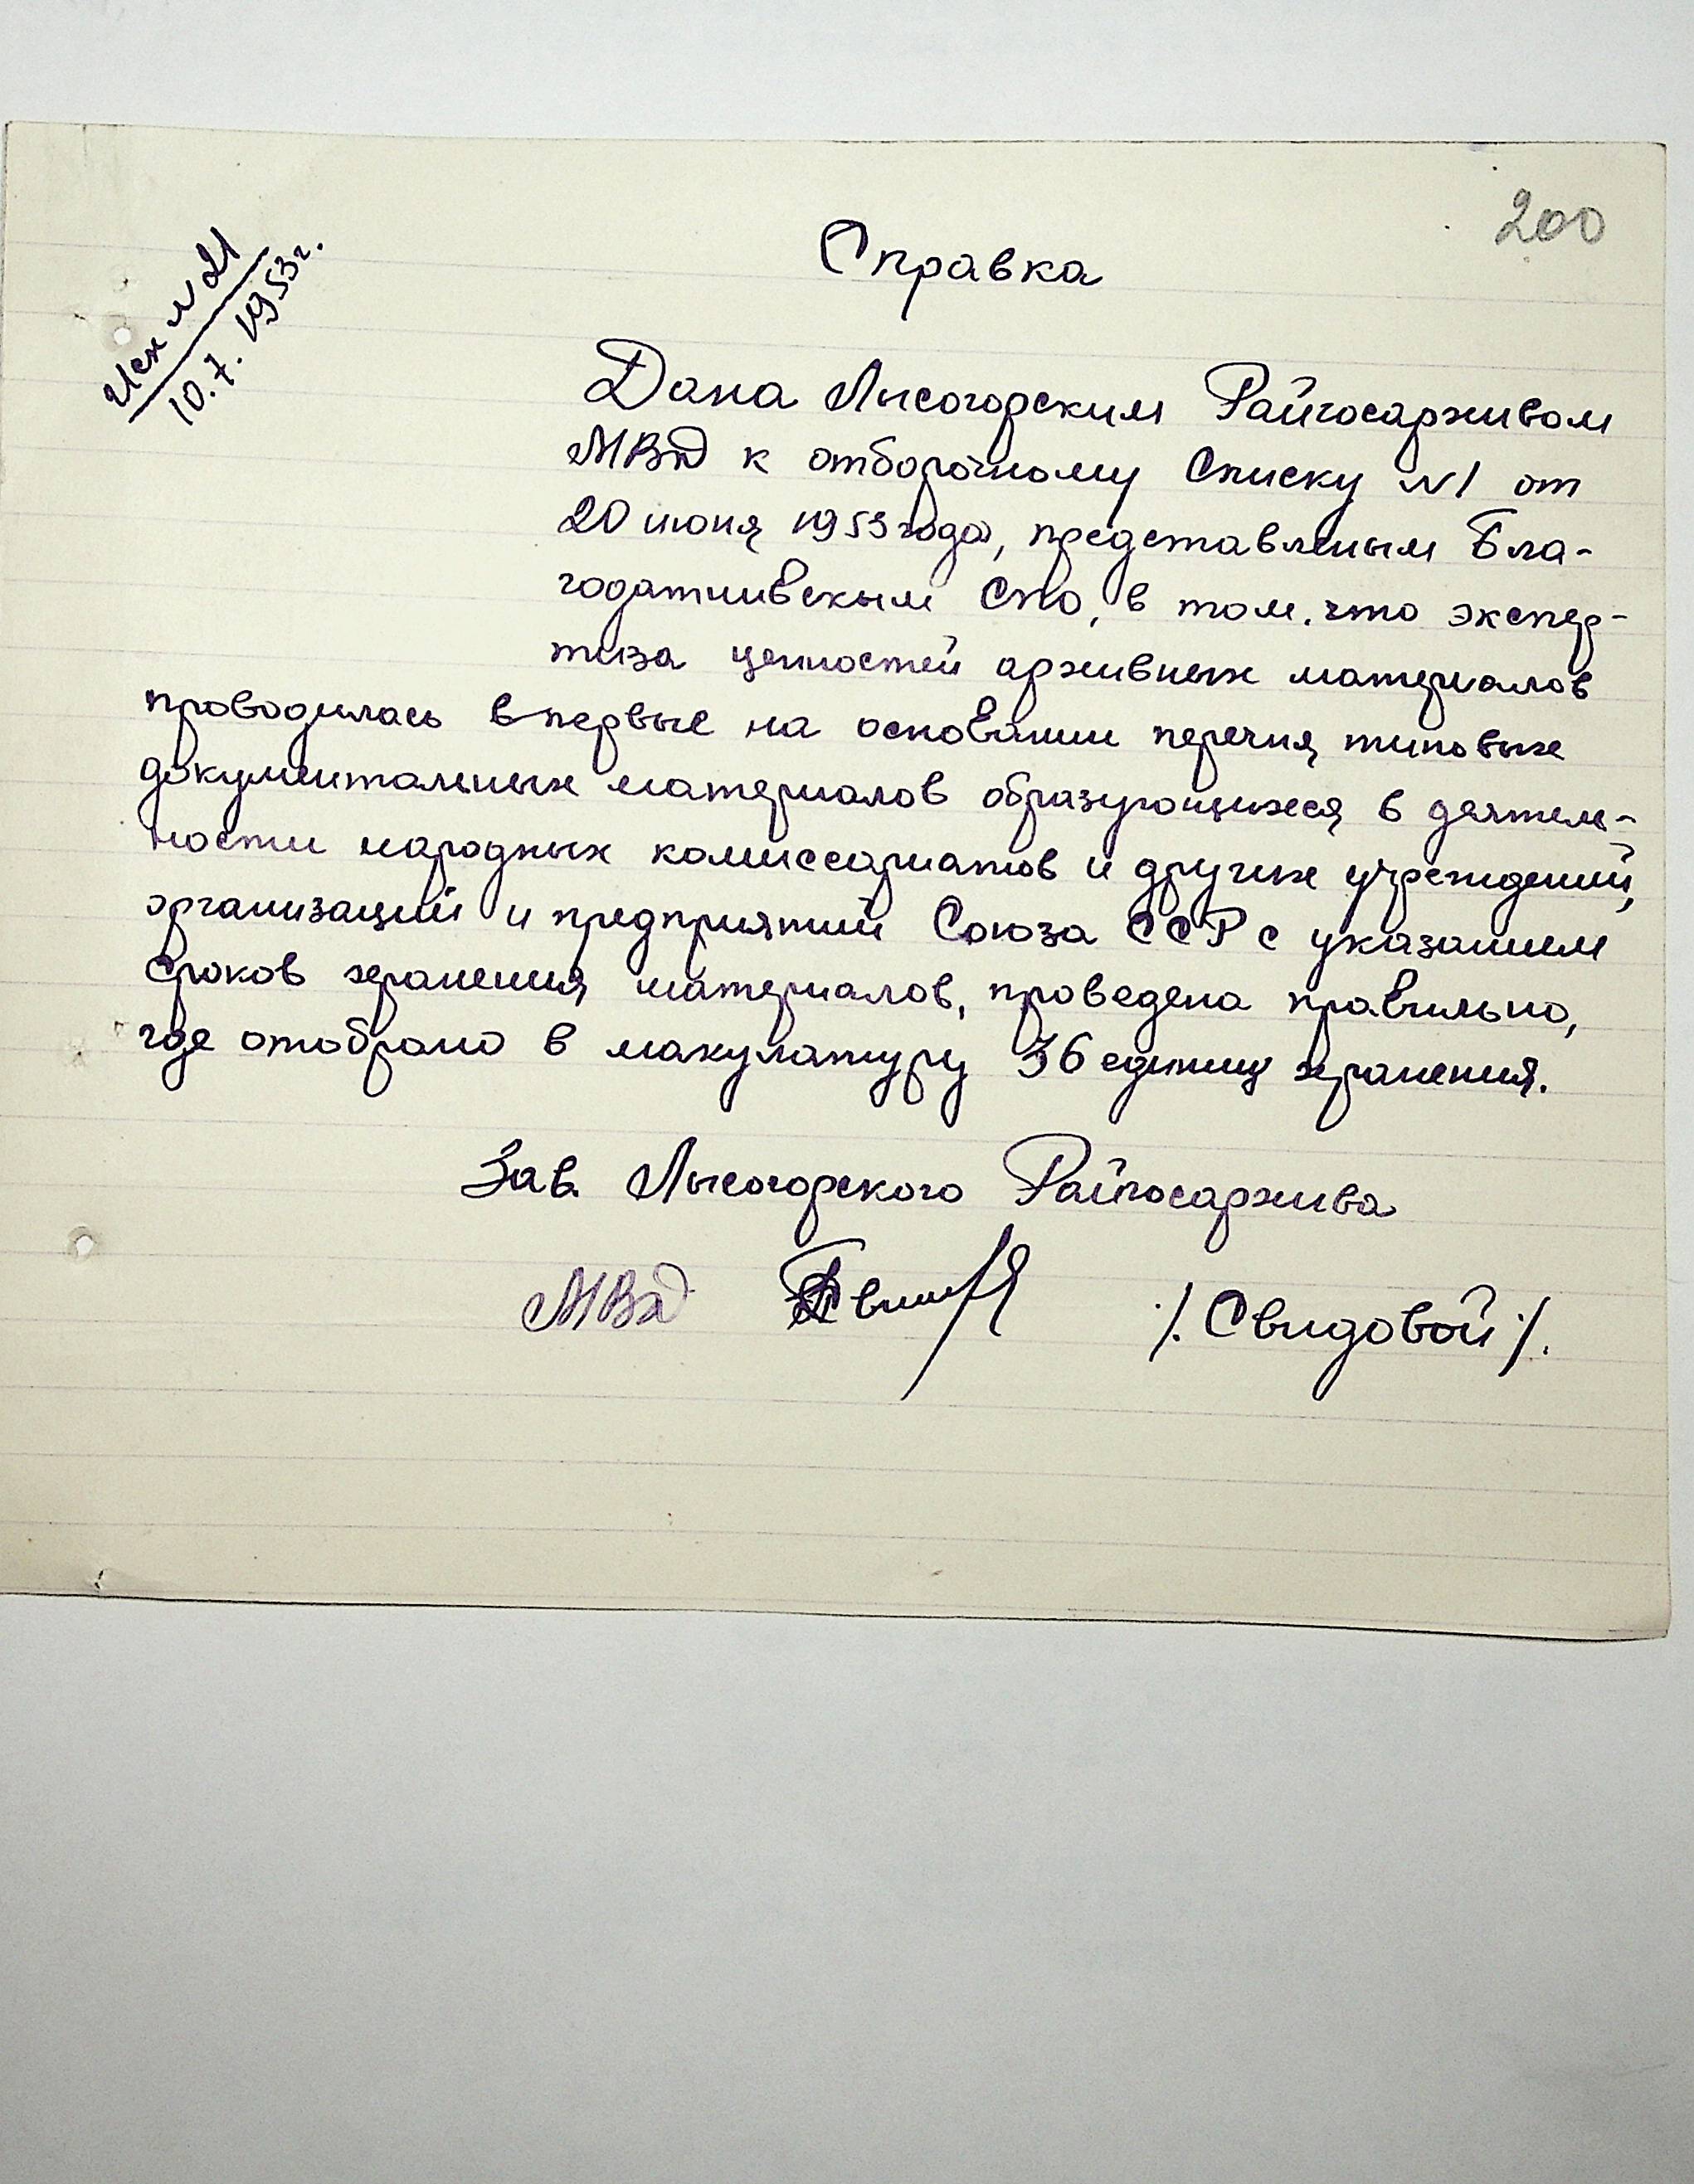 200
Исх N 21
10.7.1953г.
Справка
Дана Лысогорским Райгосархивом
МВД к отборочному списку N1 от
20 июня 1953 года, представленым Бла-
годатнивским СПО, в том, что экспер-
тиза ценностей архивных материалов
проводилась впервые на основании перечня типовых
документальных материалов образующихся в деятель-
ности народных комиссариатов и других учреждений,
организаций и предприятий Союза ССР с указанием
сроков хранения материалов, проведена правильно,
где отобрано в макулатуру 36 единиц хранения.
Зав. Лысогорского Райгосархива
МВД /. Свидовой /.